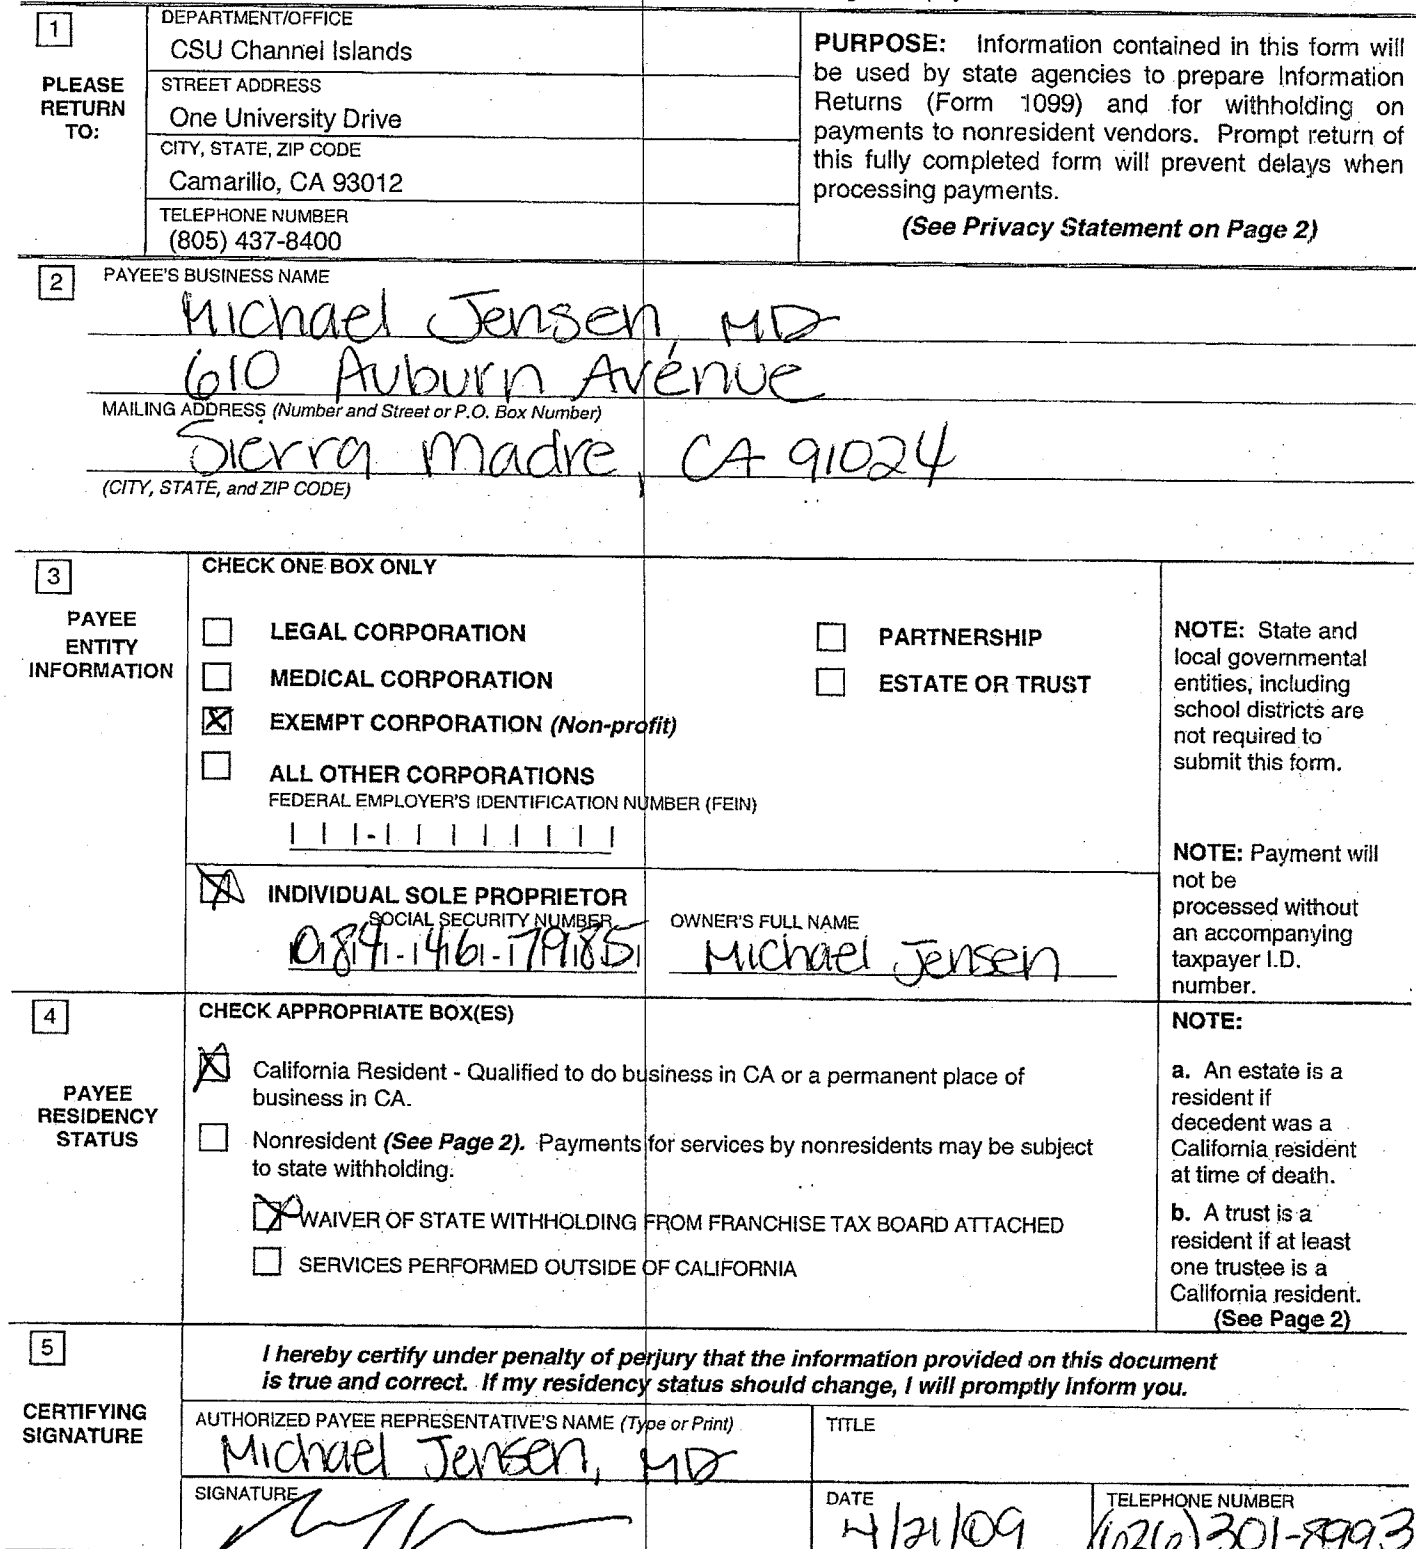 1
PLEASE
RETURN
TO:
DEPARTMENT/OFFICE
CSU Channel Islands
STREET ADDRESS
One University Drive
CITY, STATE, ZIP CODE
Camarillo, CA 93012
TELEPHONE NUMBER
(805) 437-8400
PURPOSE: Information contained in this form will
be used by state agencies to prepare Information
Returns (Form 1099) and for withholding on
payments to nonresident vendors. Prompt return of
this fully completed form will prevent delays when
processing payments.
(See Privacy Statement on Page 2)
2
PAYEE'S BUSINESS NAME
Michael Jensen, MD
610 Auburn Avenue
MAILING ADDRESS (Number and Street or P.O. Box Number)
Sierra Madre, CA 91024
(CITY, STATE, and ZIP CODE)
3
PAYEE
ENTITY
INFORMATION
CHECK ONE BOX ONLY
LEGAL CORPORATION
MEDICAL CORPORATION
EXEMPT CORPORATION (Non-profit)
ALL OTHER CORPORATIONS
FEDERAL EMPLOYER'S IDENTIFICATION NUMBER (FEIN)
PARTNERSHIP
ESTATE OR TRUST
INDIVIDUAL SOLE PROPRIETOR
SOCIAL SECURITY NUMBER
084-46-7985
OWNER'S FULL NAME
Michael Jensen
NOTE: State and
local governmental
entities, including
school districts are
not required to
submit this form.
NOTE: Payment will
not be
processed without
an accompanying
taxpayer I.D.
number.
4
PAYEE
RESIDENCY
STATUS
CHECK APPROPRIATE BOX(ES)
California Resident - Qualified to do business in CA or a permanent place of
business in CA.
Nonresident (See Page 2). Payments for services by nonresidents may be subject
to state withholding.
WAIVER OF STATE WITHHOLDING FROM FRANCHISE TAX BOARD ATTACHED
SERVICES PERFORMED OUTSIDE OF CALIFORNIA
NOTE:
a. An estate is a
resident if
decedent was a
California resident
at time of death.
b. A trust is a
resident if at least
one trustee is a
California resident.
(See Page 2)
5
CERTIFYING
SIGNATURE
I hereby certify under penalty of perjury that the information provided on this document
is true and correct. If my residency status should change, I will promptly inform you.
AUTHORIZED PAYEE REPRESENTATIVE'S NAME (Type or Print)
Michael Jensen, MD
TITLE
SIGNATURE
DATE
4/21/09
TELEPHONE NUMBER
(626)301-8993